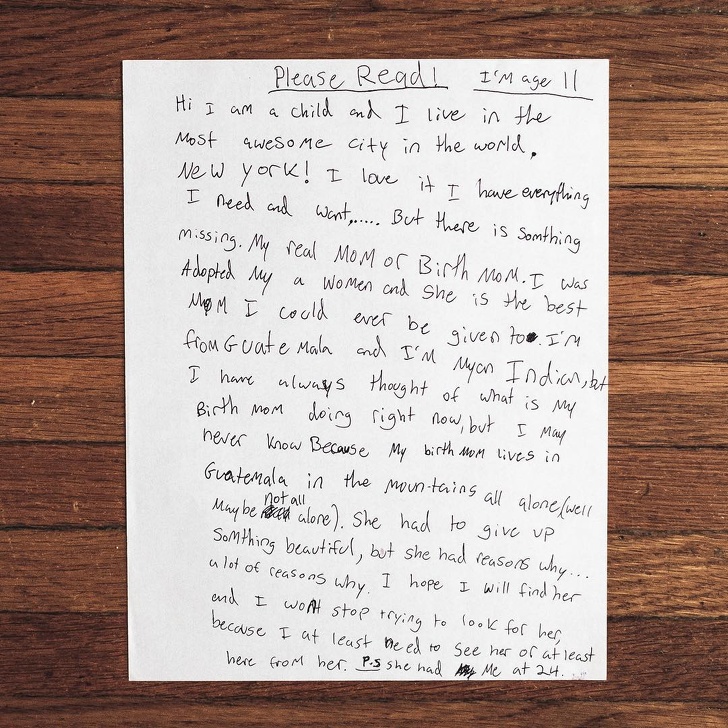 Please Read! I'M age 11
Hi I am a child and I live in the
Most awesome city in the world,
New york! I love it I have everything
I need and want,..... But there is Somthing
missing. My real Mom or Birth Mom. I was
Adopted My a women and She is the best
Mom I could ever be given to. I'm
from Guatemala and I'm Myan Indian, but
I have always thought of what is My
Birth mom doing right now, but I May
never know Because My birth Mom lives in
Guatemala in the mountains all alone (well
Maybe not all alone). She had to give up
Somthing beautiful, but she had reasons why...
a lot of reasons why. I hope I will find her
and I wont stop trying to look for her,
because I at least need to see her or at least
here from her. P.S she had Me at 24.